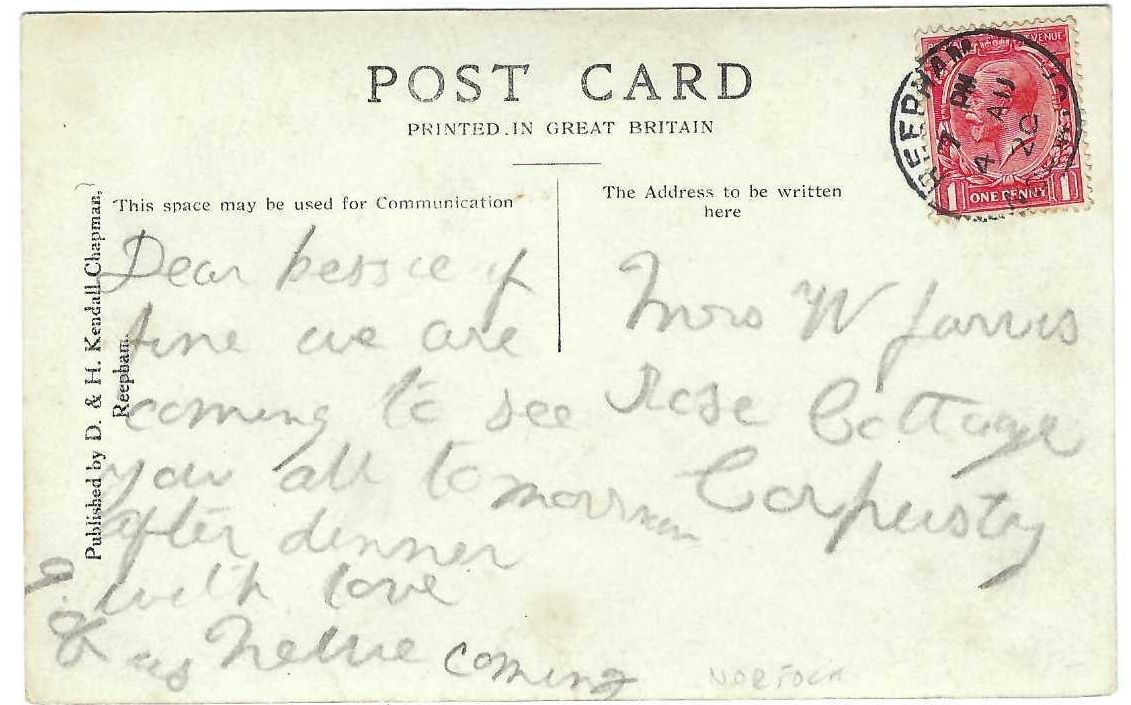 POST CARD
PRINTED IN GREAT BRITAIN
This space may be used for Communication
The Address to be written
here
Published by D. & H. Kendall Chapman,
Reepham.
REEPHAM
7 PM
4 AU
20
REVENUE
1 ONE PENNY 1
Dear bessie if
fine we are
coming to see
you all tomorrow
after dinner
with love
as Nellie coming
Mrs W Jarvis
Rose Cottage
Corpusty
NORFOLK